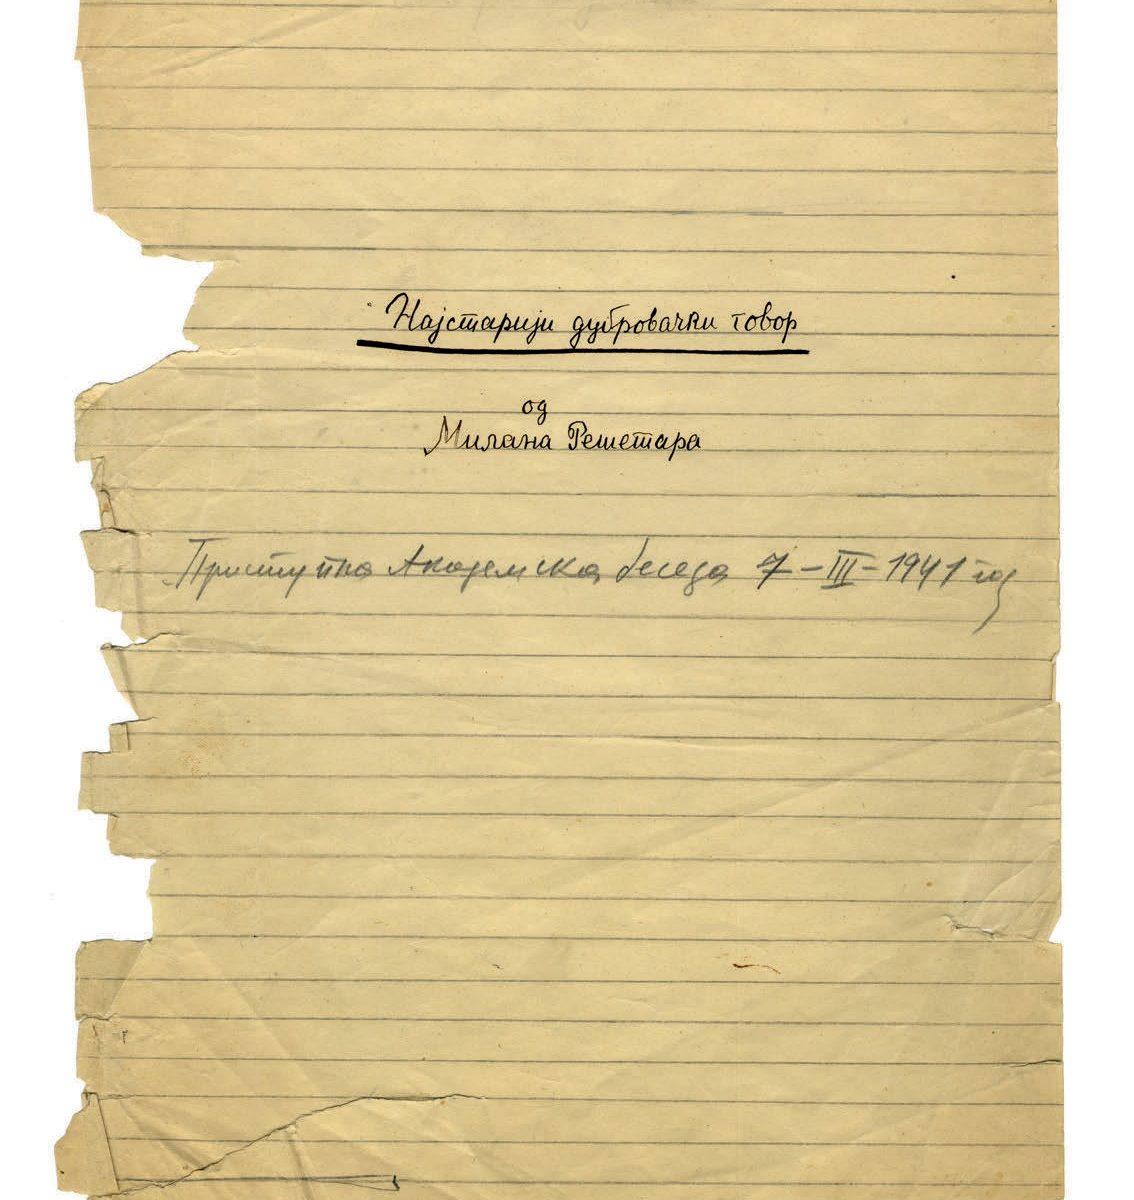 Најстарији дубровачки говор
од
Милана Решетара
Приступна Академска беседа 7-III-1941 год